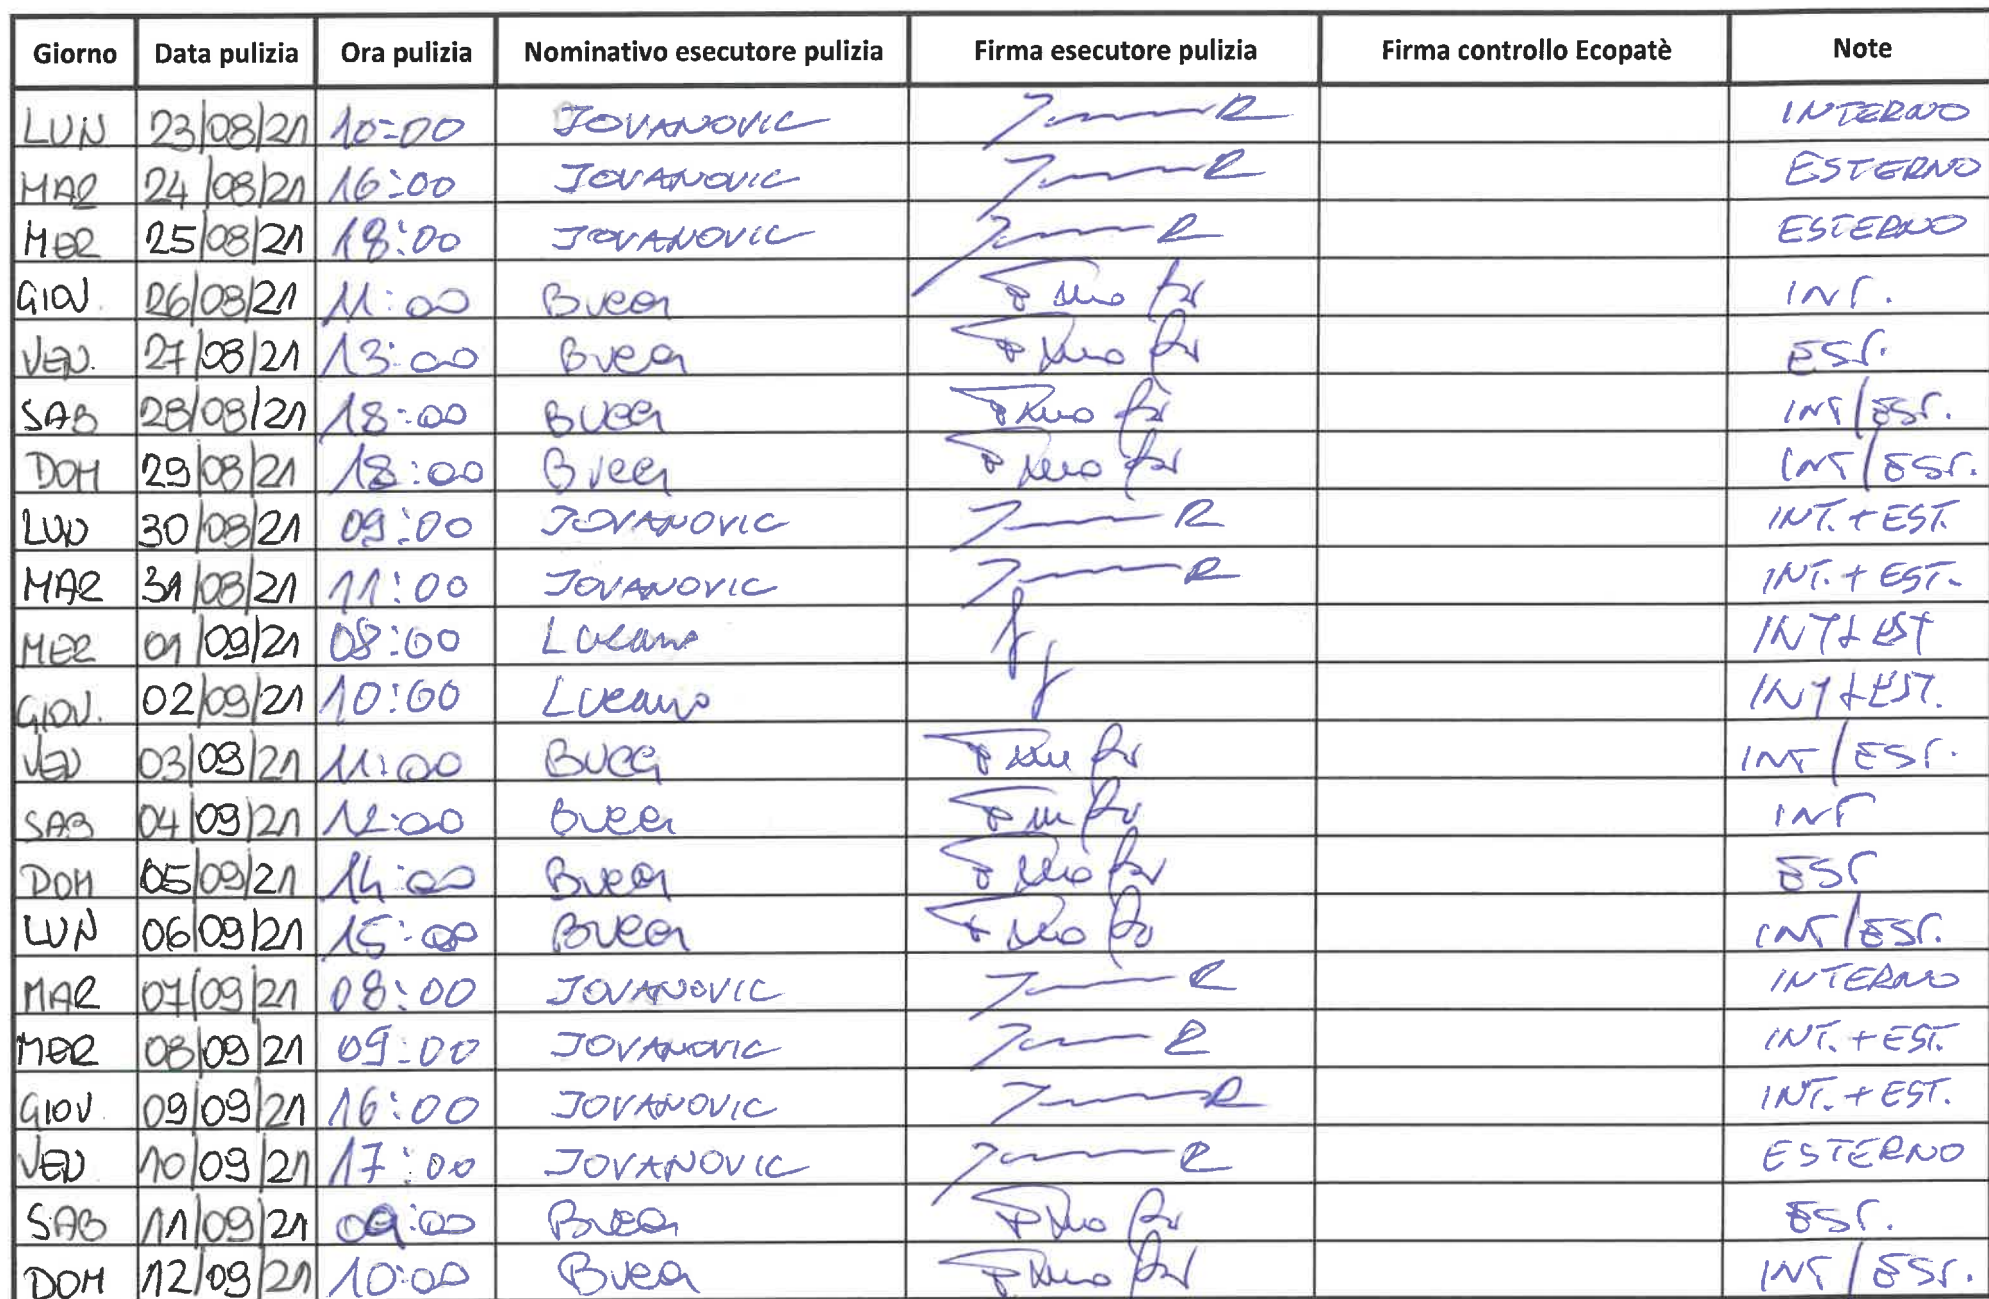 Giorno Data pulizia Ora pulizia Nominativo esecutore pulizia Firma esecutore pulizia Firma controllo Ecopatè Note
LUN 23/08/21 10:00 JOVANOVIC INTERNO
MAR 24/08/21 16:00 JOVANOVIC ESTERNO
MER 25/08/21 18:00 JOVANOVIC ESTERNO
GIOV. 26/08/21 11:00 Bucci INT.
VEN. 27/08/21 13:00 Bucci EST.
SAB 28/08/21 18:00 Bucci INT/EST.
DOM 29/08/21 18:00 Bucci INT/EST.
LUN 30/08/21 09:00 JOVANOVIC INT.+EST.
MAR 31/08/21 11:00 JOVANOVIC INT.+EST.
MER 01/09/21 08:00 Lucano INT+EST
GIOV. 02/09/21 10:00 Lucano INT+EST.
VEN 03/09/21 11:00 Bucci INT/EST.
SAB 04/09/21 12:00 Bucci INT
DOM 05/09/21 14:00 Bucci EST
LUN 06/09/21 15:00 Bucci INT/EST.
MAR 07/09/21 08:00 JOVANOVIC INTERNO
MER 08/09/21 09:00 JOVANOVIC INT.+EST.
GIOV 09/09/21 16:00 JOVANOVIC INT.+EST.
VEN 10/09/21 17:00 JOVANOVIC ESTERNO
SAB 11/09/21 09:00 Bucci EST.
DOM 12/09/21 10:00 Bucci INT/EST.